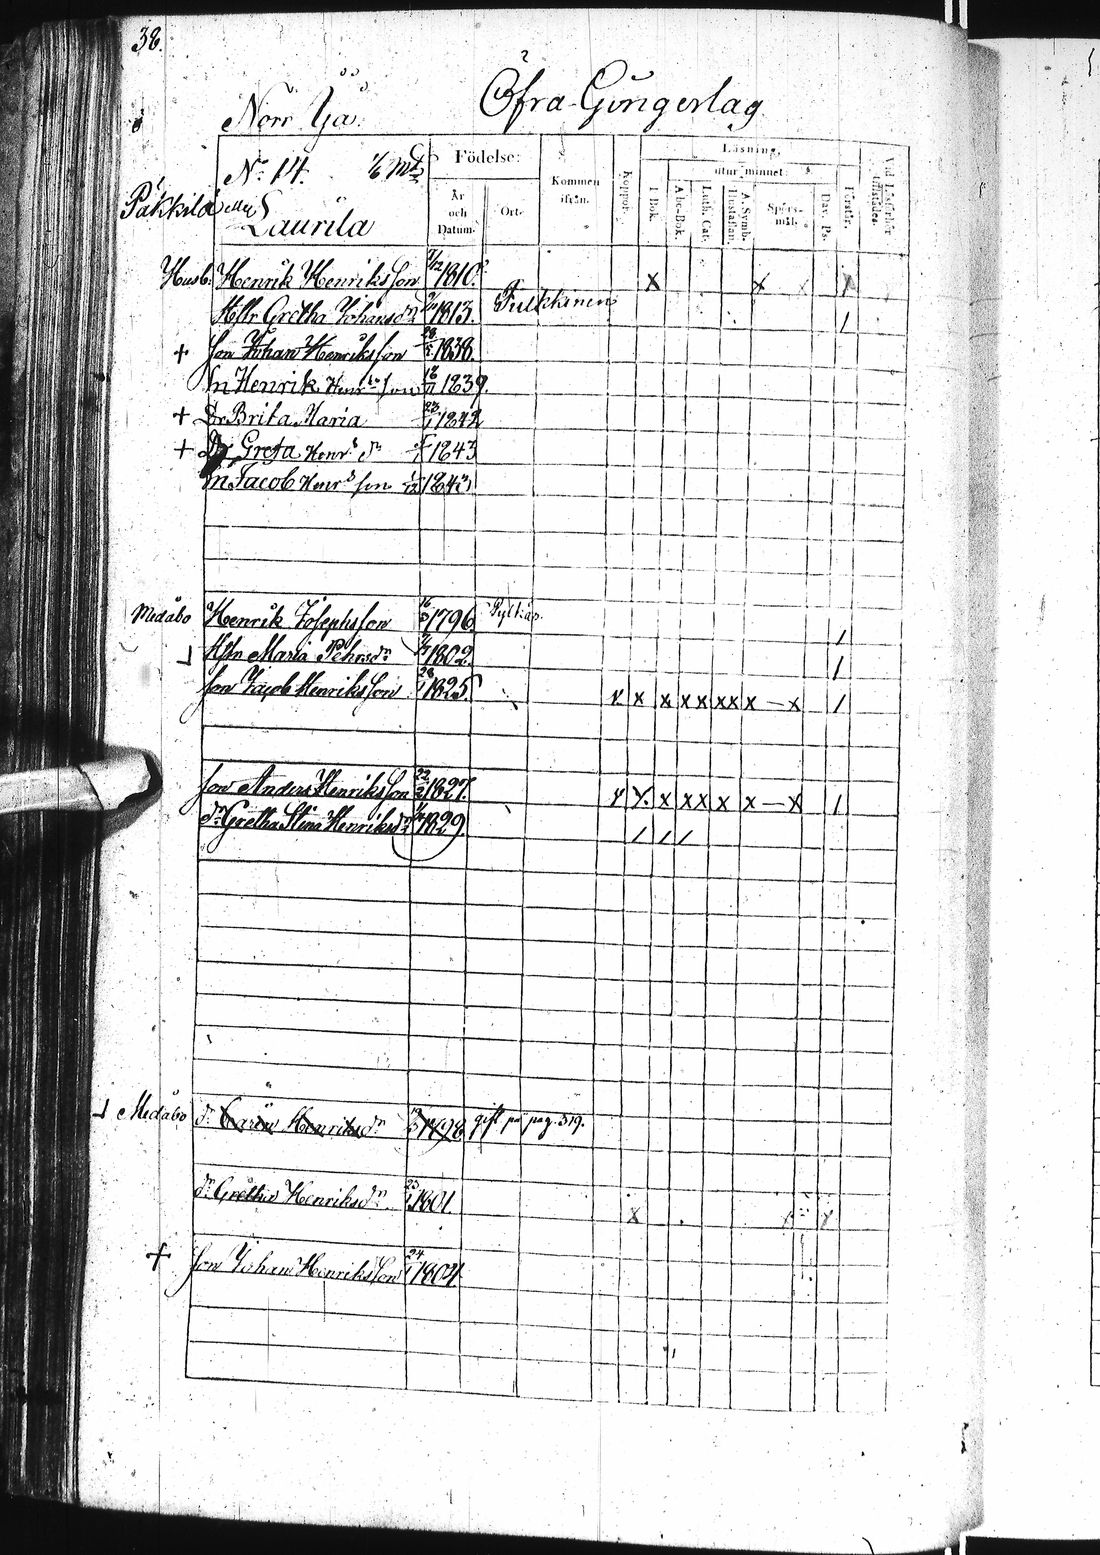 38.
Öfra-Gungerlag
Norr Yä.
Nº 14. 1/6 Mtl
Päkkilä eller Laurila
Födelse:
År och Datum.
Ort.
Kommen ifrån.
Koppor.
Läsning,
utur minnet:
I Bok.
Abc-Bok.
Luth. Cat.
A. Symb.
Hustaflan.
Spörs-mål.
Dav. Ps.
Förstår.
Vid Läsförhör tillstädes.
Husb. Henrik Henriksson 1810. x x x
Hstr Gretha Johansdr 1813. Pulkkinen /
+ Son Johan Henriksson 1838.
Sn Henrik Henrsson 1839.
+ Dr Brita Maria 1842
+ Dr Greta Henrs dr 1843
Sn Jacob Henrs son 1843
Medåbo Henrik Josephsson 1796 /
Hstr Maria Pehrsdr 1802. /
Son Jacob Henriksson 1825. x x x x x x x x — x /
Son Anders Henriksson 22 1827. x x x x x x x — x /
dr Gretha Stina Henriksdr 1829. / / /
Medåbo dr Carin Henriksdr 1798 gift på pag. 319.
dr Gretha Henriksdr 23 1801. x
+ Son Johan Henriksson 24 1804